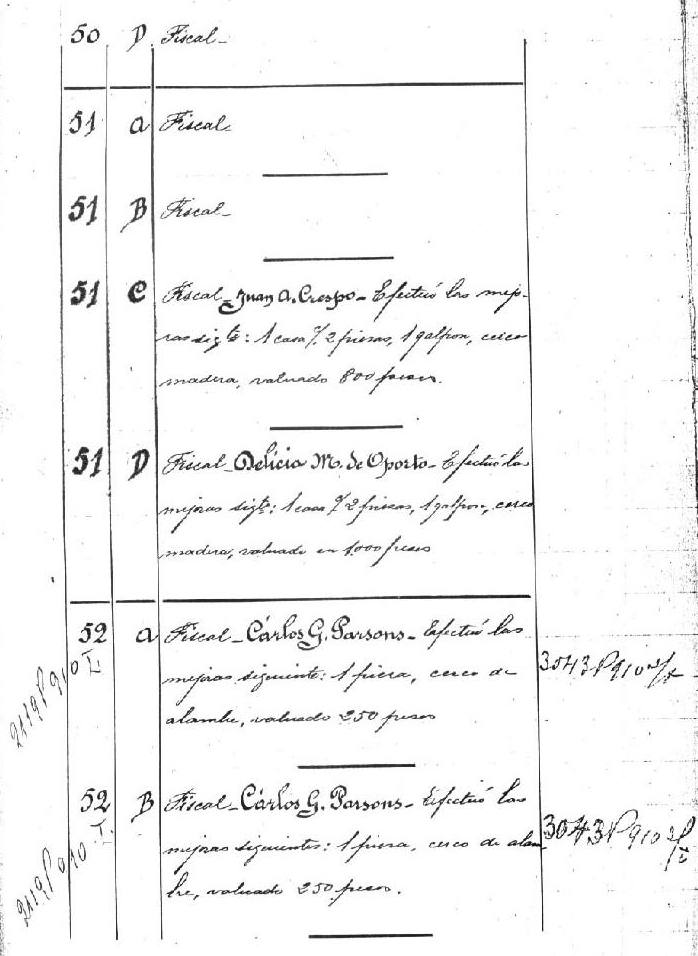 50 D Fiscal_
51 a Fiscal_
51 B Fiscal_
51 C Fiscal_Juan A. Crespo_Efectuó las mejo-
ras sigte: 1 casa % 2 piezas, 1 galpon, cerco
madera, valuado 800 pesos.
51 D Fiscal_Delicia M. de Oporto_Efectuó las
mejoras sigte: 1 casa % 2 piezas, 1 galpon, cerco
madera, valuado en 1.000 pesos
52 a Fiscal_Cárlos G. Parsons_Efectuó las
mejoras siguiente: 1 pieza, cerco de
alambre, valuado 250 pesos
2119 P 910
3043 P 910
52 B Fiscal_Cárlos G. Parsons_Efectuó las
mejoras siguientes: 1 pieza, cerco de alam
bre, valuado 250 pesos.
2119 P 910
3043 P 910